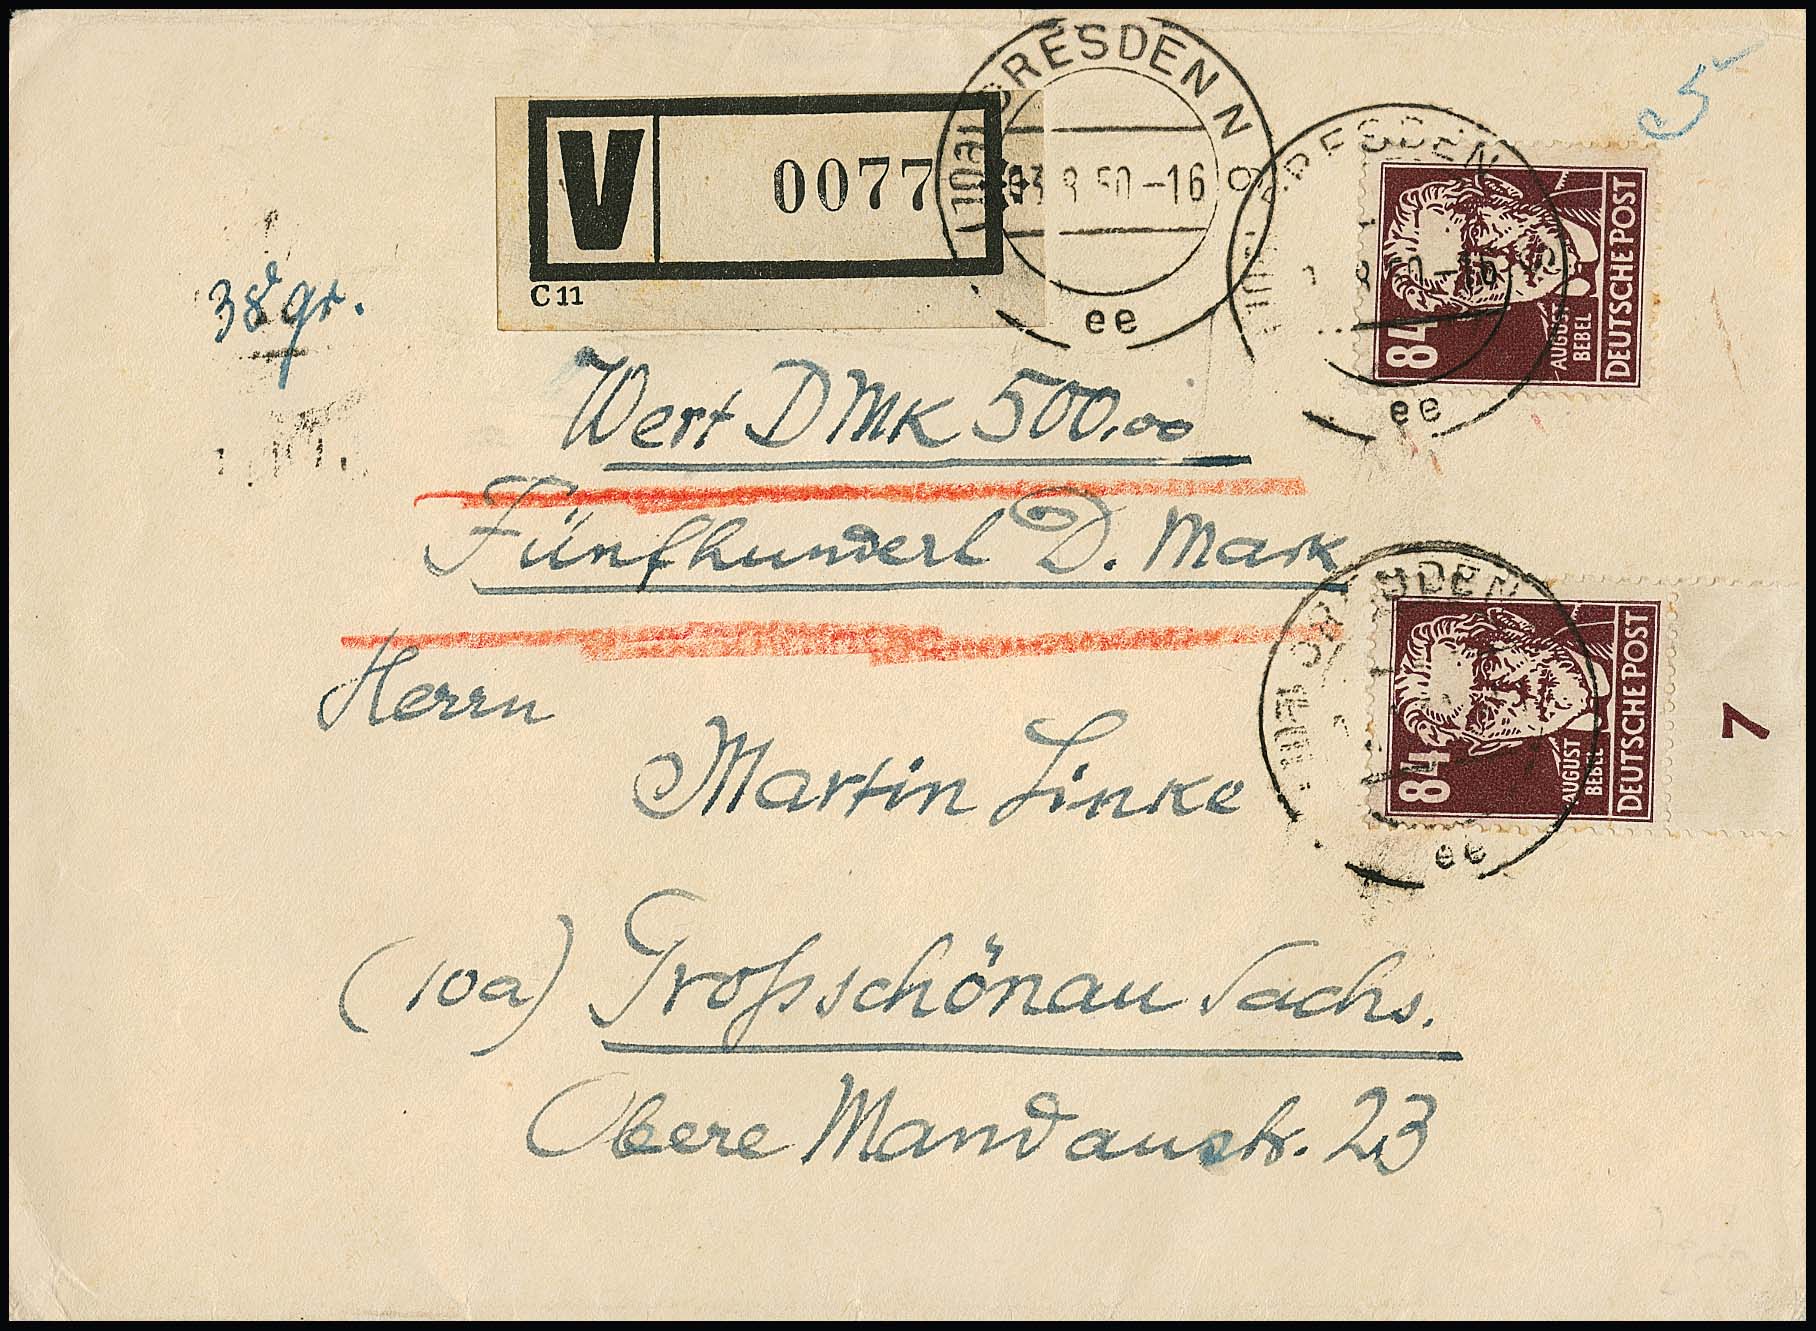 (10a) DRESDEN N
V 0077
03.8.50-16
ee
C 11
5
DRESDEN
ee
84
AUGUST
BEBEL
DEUTSCHE POST
38 gr.
Wert DMK 500,00
Fünfhundert D. Mark
DEN
ee
84
AUGUST
BEBEL
DEUTSCHE POST
7
Herrn
Martin Linke
(10a) Großschönau Sachs.
Obere Mandaustr. 23